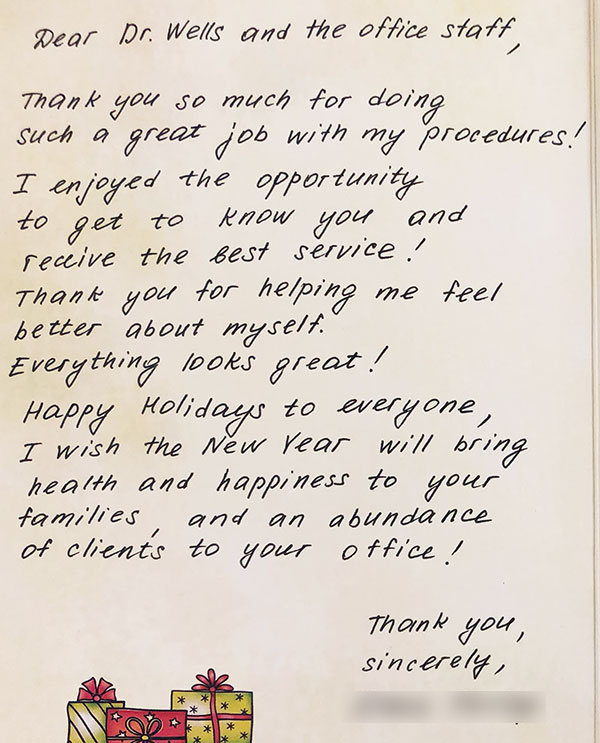 Dear Dr. Wells and the office staff,
Thank you so much for doing
such a great job with my procedures!
I enjoyed the opportunity
to get to know you and
receive the best service!
Thank you for helping me feel
better about myself.
Everything looks great!
Happy Holidays to everyone,
I wish the New Year will bring
health and happiness to your
families, and an abundance
of clients to your office!
Thank you,
sincerely,